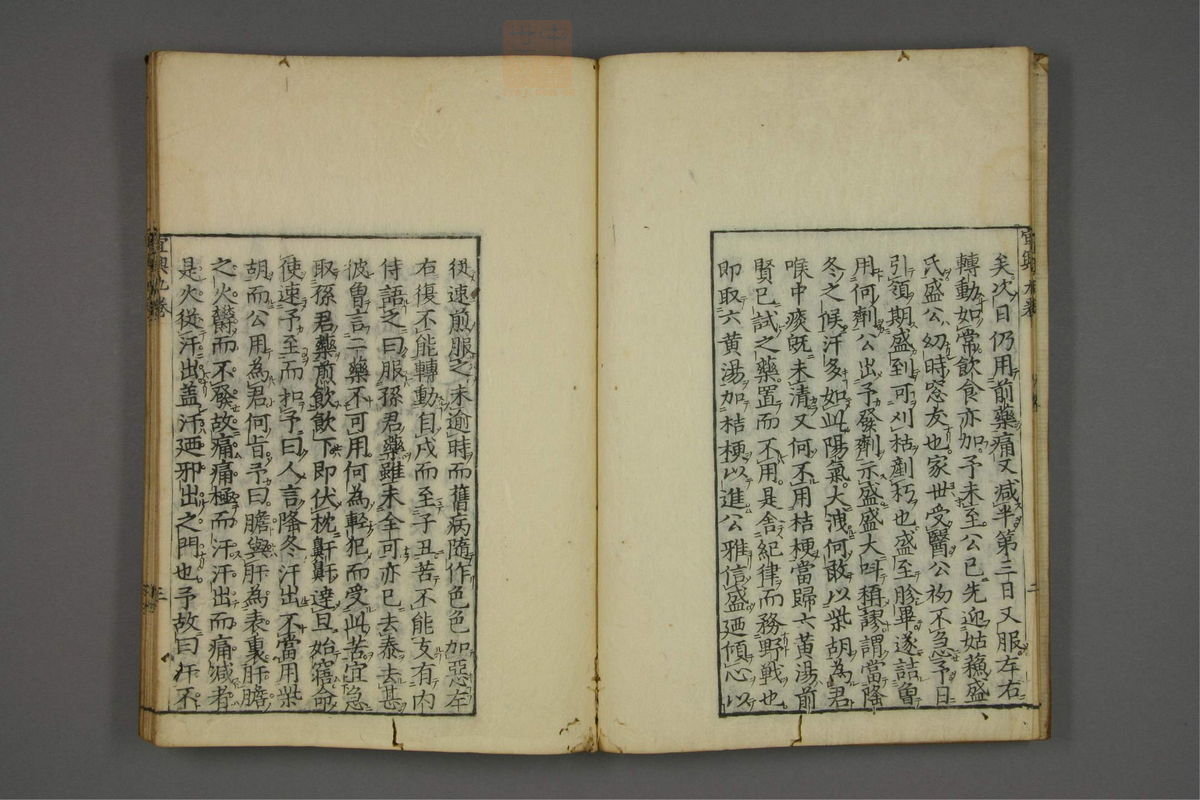 矣次日仍用前藥痛又减半第三日又服左右
轉動如常飲食亦加予未至公已先迎姑蘓盛
氏盛公㓜時窓友也家世受醫公初不急予日
引領期盛到可刈枯剷朽也盛至胗畢遂詰魯
用何劑公出予發劑示盛盛大呌稱謬謂當隆
冬之候汗多如此陽氣大洩何敢以柴胡為君
喉中痰既未清又何不用桔梗當歸六黄湯前
賢已試之藥置而不用是舎紀律而務野戦也
即取六黄湯加桔梗以進公雅信盛廼傾心以
従速煎服之未逾時而舊病隨作色色加惡左
右復不能轉動自戌而至子丑苦不能支有内
侍語之曰服孫君藥雖未全可亦已去泰去甚
彼曽言二藥不可用何為輕犯而受此苦宜急
取孫君藥煎飲飲下即伏枕鼾鼾達旦始寤命
使速予至而扣予曰人言隆冬汗出不當用柴
胡而公用為君何㫖予曰膽與肝為表裏肝膽
之火欝而不發故痛痛極而汗汗出而痛减者
是火従汗出盖汗廼邪出之門也予故曰汗不
二
三